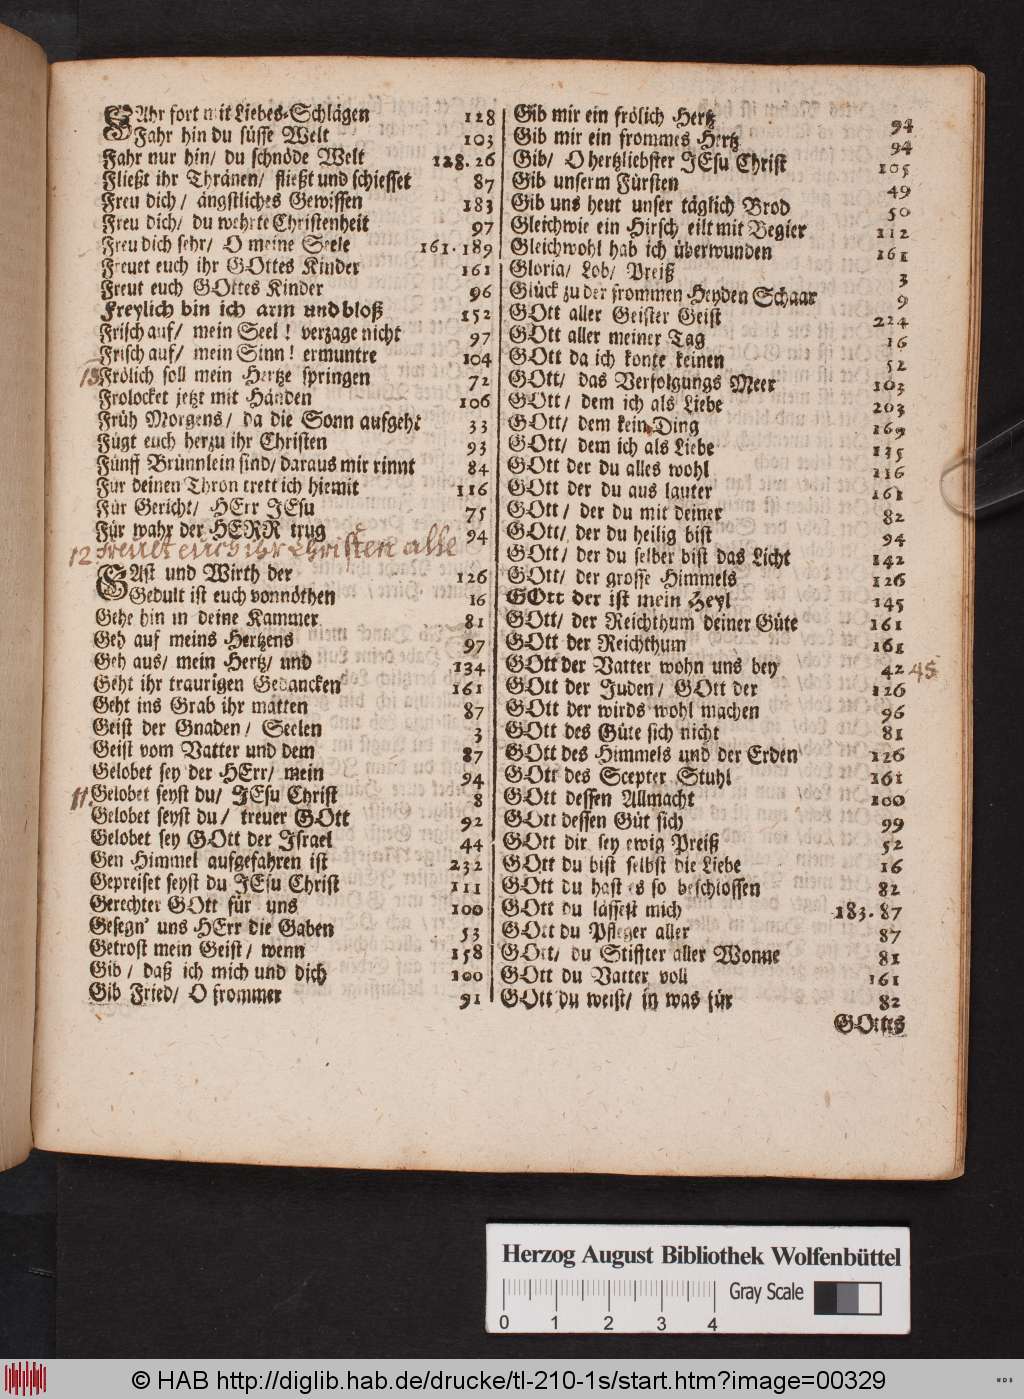 FAhr fort mit Liebes-Schlägen 128
Fahr hin du süsse Welt 103
Fahr nur hin/ du schnöde Welt 128. 26
Fließt ihr Thränen/ fließt und schiesset 87
Freu dich/ ängstliches Gewissen 183
Freu dich/ du wehrte Christenheit 97
Freu dich sehr/ O meine Seele 161. 189
Freuet euch ihr GOttes Kinder 161
Freut euch GOttes Kinder 96
Freylich bin ich arm und bloß 152
Frisch auf/ mein Seel! verzage nicht 97
Frisch auf/ mein Sinn! ermuntre 104
Frölich soll mein Hertze springen 72
Frolocket jetzt mit Händen 106
Früh Morgens/ da die Sonn aufgeht 33
Fügt euch herzu ihr Christen 93
Fünff Brünnlein sind/ daraus mir rinnt 84
Für deinen Thron trett ich hiemit 116
Für Gericht/ HErr JEsu 75
Für wahr der HERR trug 94
12 Freuet euch ihr Christen alle
GAst und Wirth der 126
Gedult ist euch vonnöthen 16
Gehe hin in deine Kammer 81
Geh auf meins Hertzens 97
Geh aus/ mein Hertz/ und 134
Geht ihr traurigen Gedancken 161
Geht ins Grab ihr matten 87
Geist der Gnaden/ Seelen 3
Geist vom Vatter und dem 87
Gelobet sey der HErr/ mein 94
11. Gelobet seyst du/ JEsu Christ 8
Gelobet seyst du/ treuer GOtt 92
Gelobet sey GOtt der Israel 44
Gen Himmel aufgefahren ist 232
Gepreiset seyst du JEsu Christ 111
Gerechter GOtt für uns 100
Gesegn' uns HErr die Gaben 53
Getrost mein Geist/ wenn 158
Gib/ daß ich mich und dich 100
Gib Fried/ O frommer 91
Gib mir ein frölich Hertz 94
Gib mir ein frommes Hertz 94
Gib/ O hertzliebster JEsu Christ 105
Gib unserm Fürsten 49
Gib uns heut unser täglich Brod 50
Gleichwie ein Hirsch eilt mit Begier 112
Gleichwohl hab ich überwunden 161
Gloria/ Lob/ Preiß 3
Glück zu der frommen Heyden Schaar 9
GOtt aller Geister Geist 224
GOtt aller meiner Tag 16
GOtt da ich konte keinen 52
GOtt/ das Verfolgungs Meer 103
GOtt/ dem ich als Liebe 203
GOtt/ dem kein Ding 169
GOtt/ dem ich als Liebe 135
GOtt der du alles wohl 116
GOtt der du aus lauter 161
GOtt/ der du mit deiner 82
GOtt/ der du heilig bist 94
GOtt/ der du selber bist das Licht 142
GOtt/ der grosse Himmels 126
GOtt der ist mein Heyl 145
GOtt/ der Reichthum deiner Güte 161
GOtt der Reichthum 161
GOtt der Vatter wohn uns bey 42 45
GOtt der Juden/ GOtt der 126
GOtt der wirds wohl machen 96
GOtt des Güte sich nicht 81
GOtt des Himmels und der Erden 126
GOtt des Scepter Stuhl 161
GOtt dessen Allmacht 100
GOtt dessen Güt sich 99
GOtt dir sey ewig Preiß 52
GOtt du bist selbst die Liebe 16
GOtt du hast es so beschlossen 82
GOtt du lässest mich 183. 87
GOtt du Pfleger aller 87
GOtt/ du Stiffter aller Wonne 81
GOtt du Vatter voll 161
GOtt du weist/ in was für 82
GOttes
Herzog August Bibliothek Wolfenbüttel
0 1 2 3 4
Gray Scale
© HAB http://diglib.hab.de/drucke/tl-210-1s/start.htm?image=00329